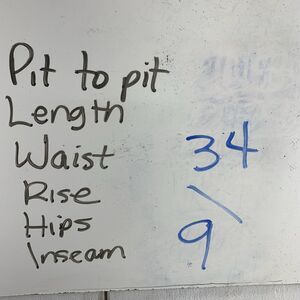 Pit to pit
Length
Waist 34
Rise \
Hips 9
Inseam